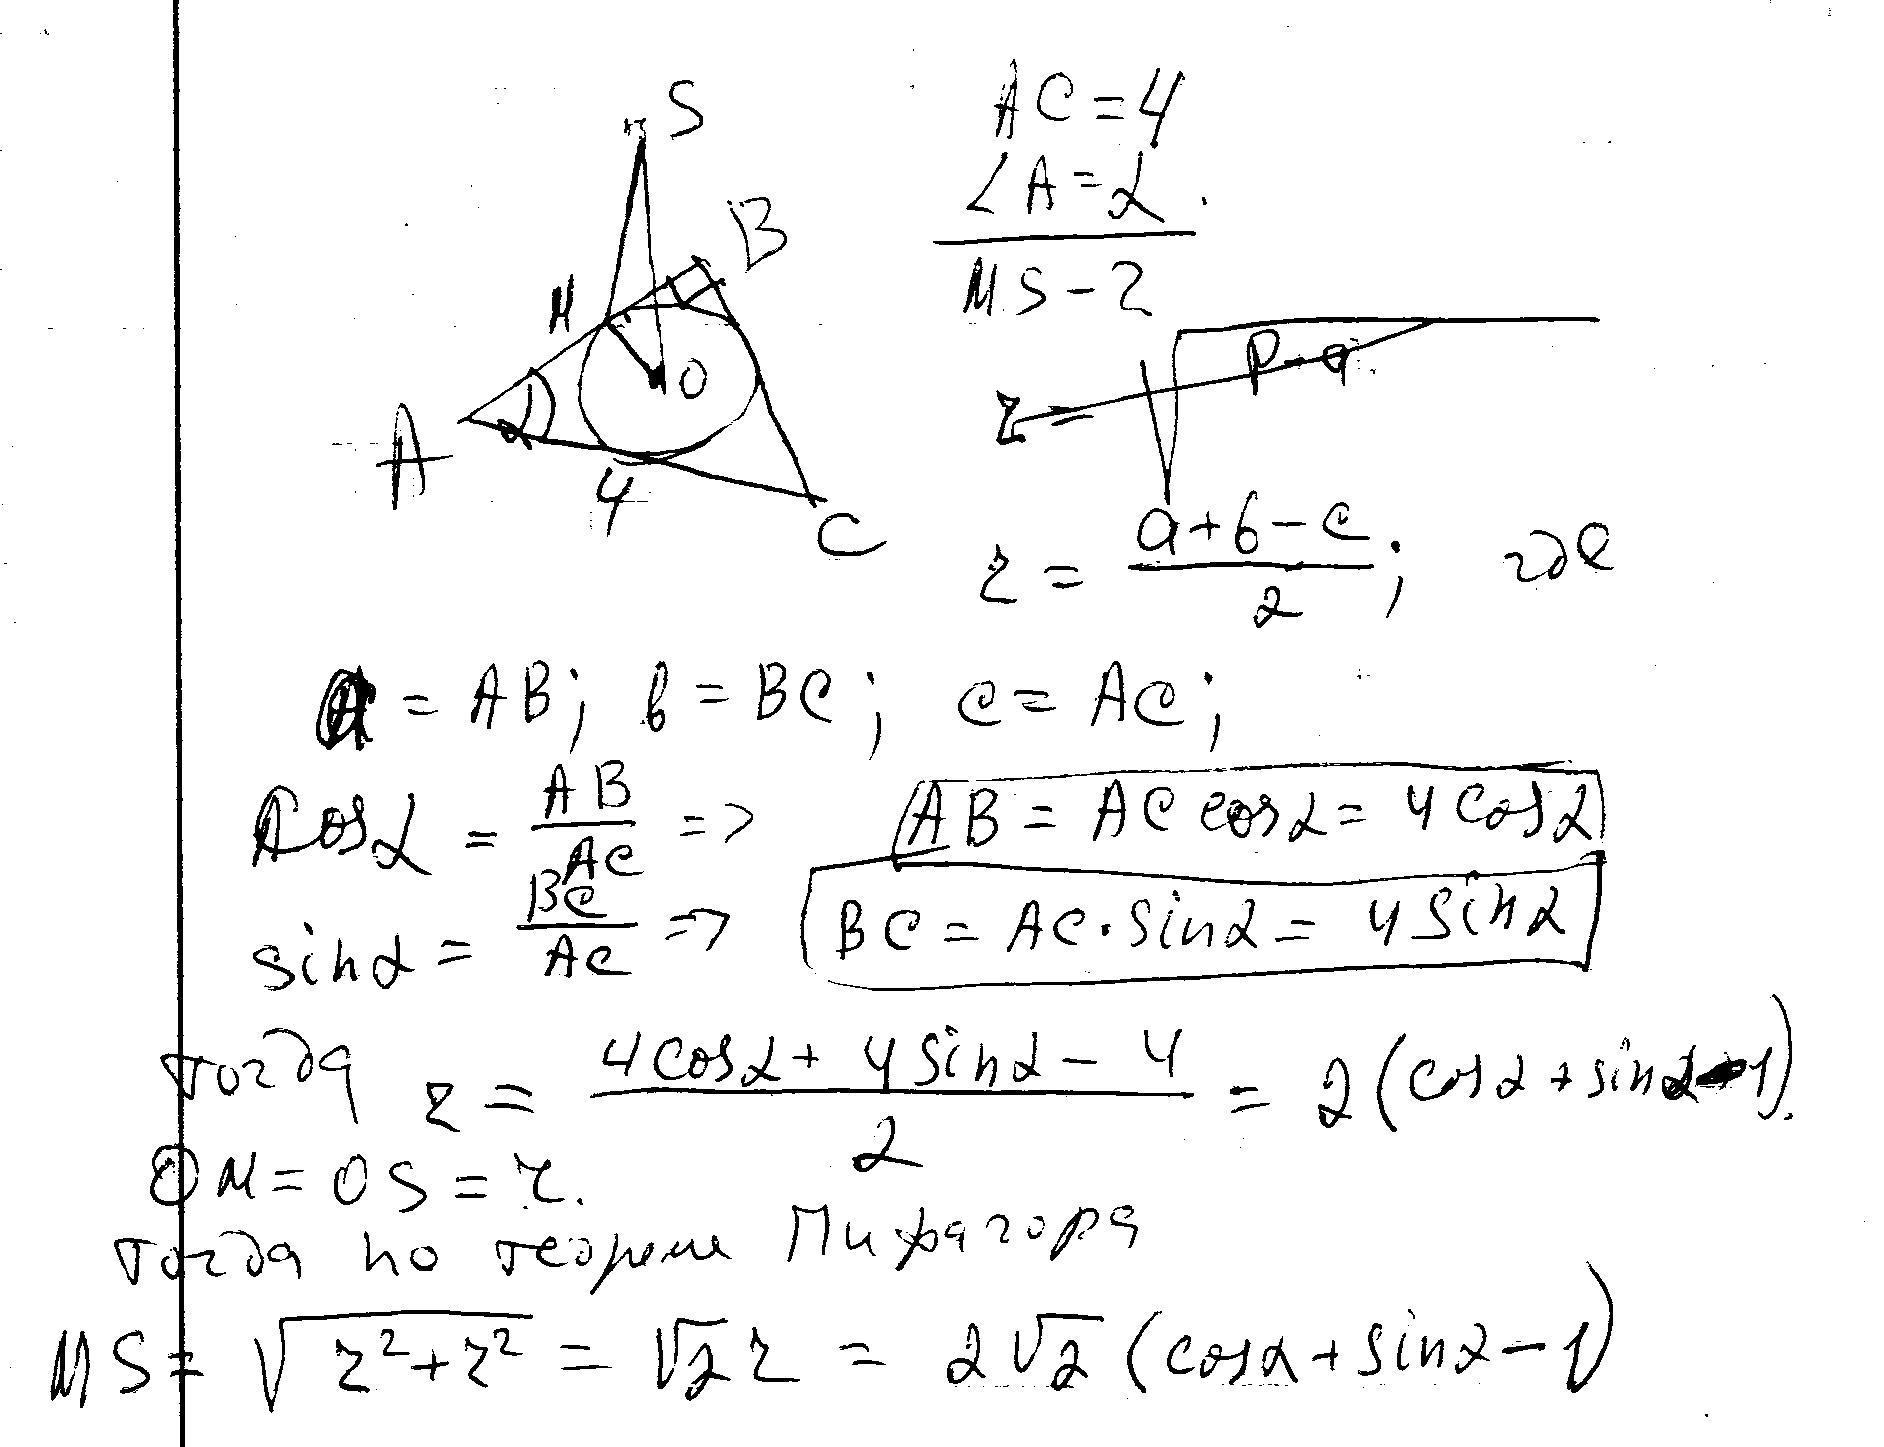 S
B
M
O
A
α
4
C
AC = 4
∠A = α
MS - ?
r =
p - a
r = (a + b - c) / 2 ; где
a = AB; b = BC; c = AC;
cosα = AB / AC => AB = AC cosα = 4 cosα
sinα = BC / AC => BC = AC · sinα = 4 sinα
тогда r = (4cosα + 4sinα - 4) / 2 = 2 (cosα + sinα - 1).
OM = OS = r.
тогда по теореме Пифагора
MS = √(r² + r²) = √2 r = 2√2 (cosα + sinα - 1)